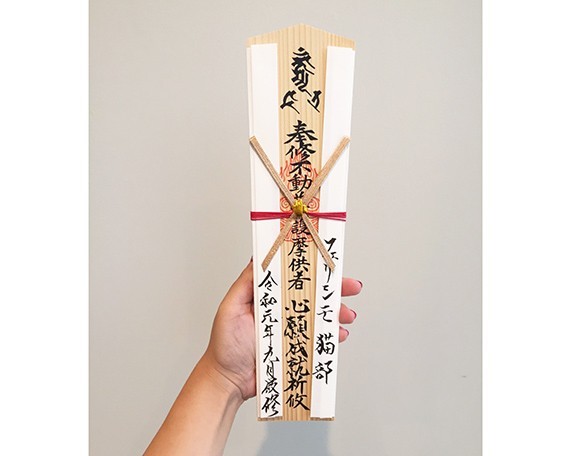 フェリシモ 猫部
奉修不動尊護摩供者 心願成就祈攸
令和元年九月厳修